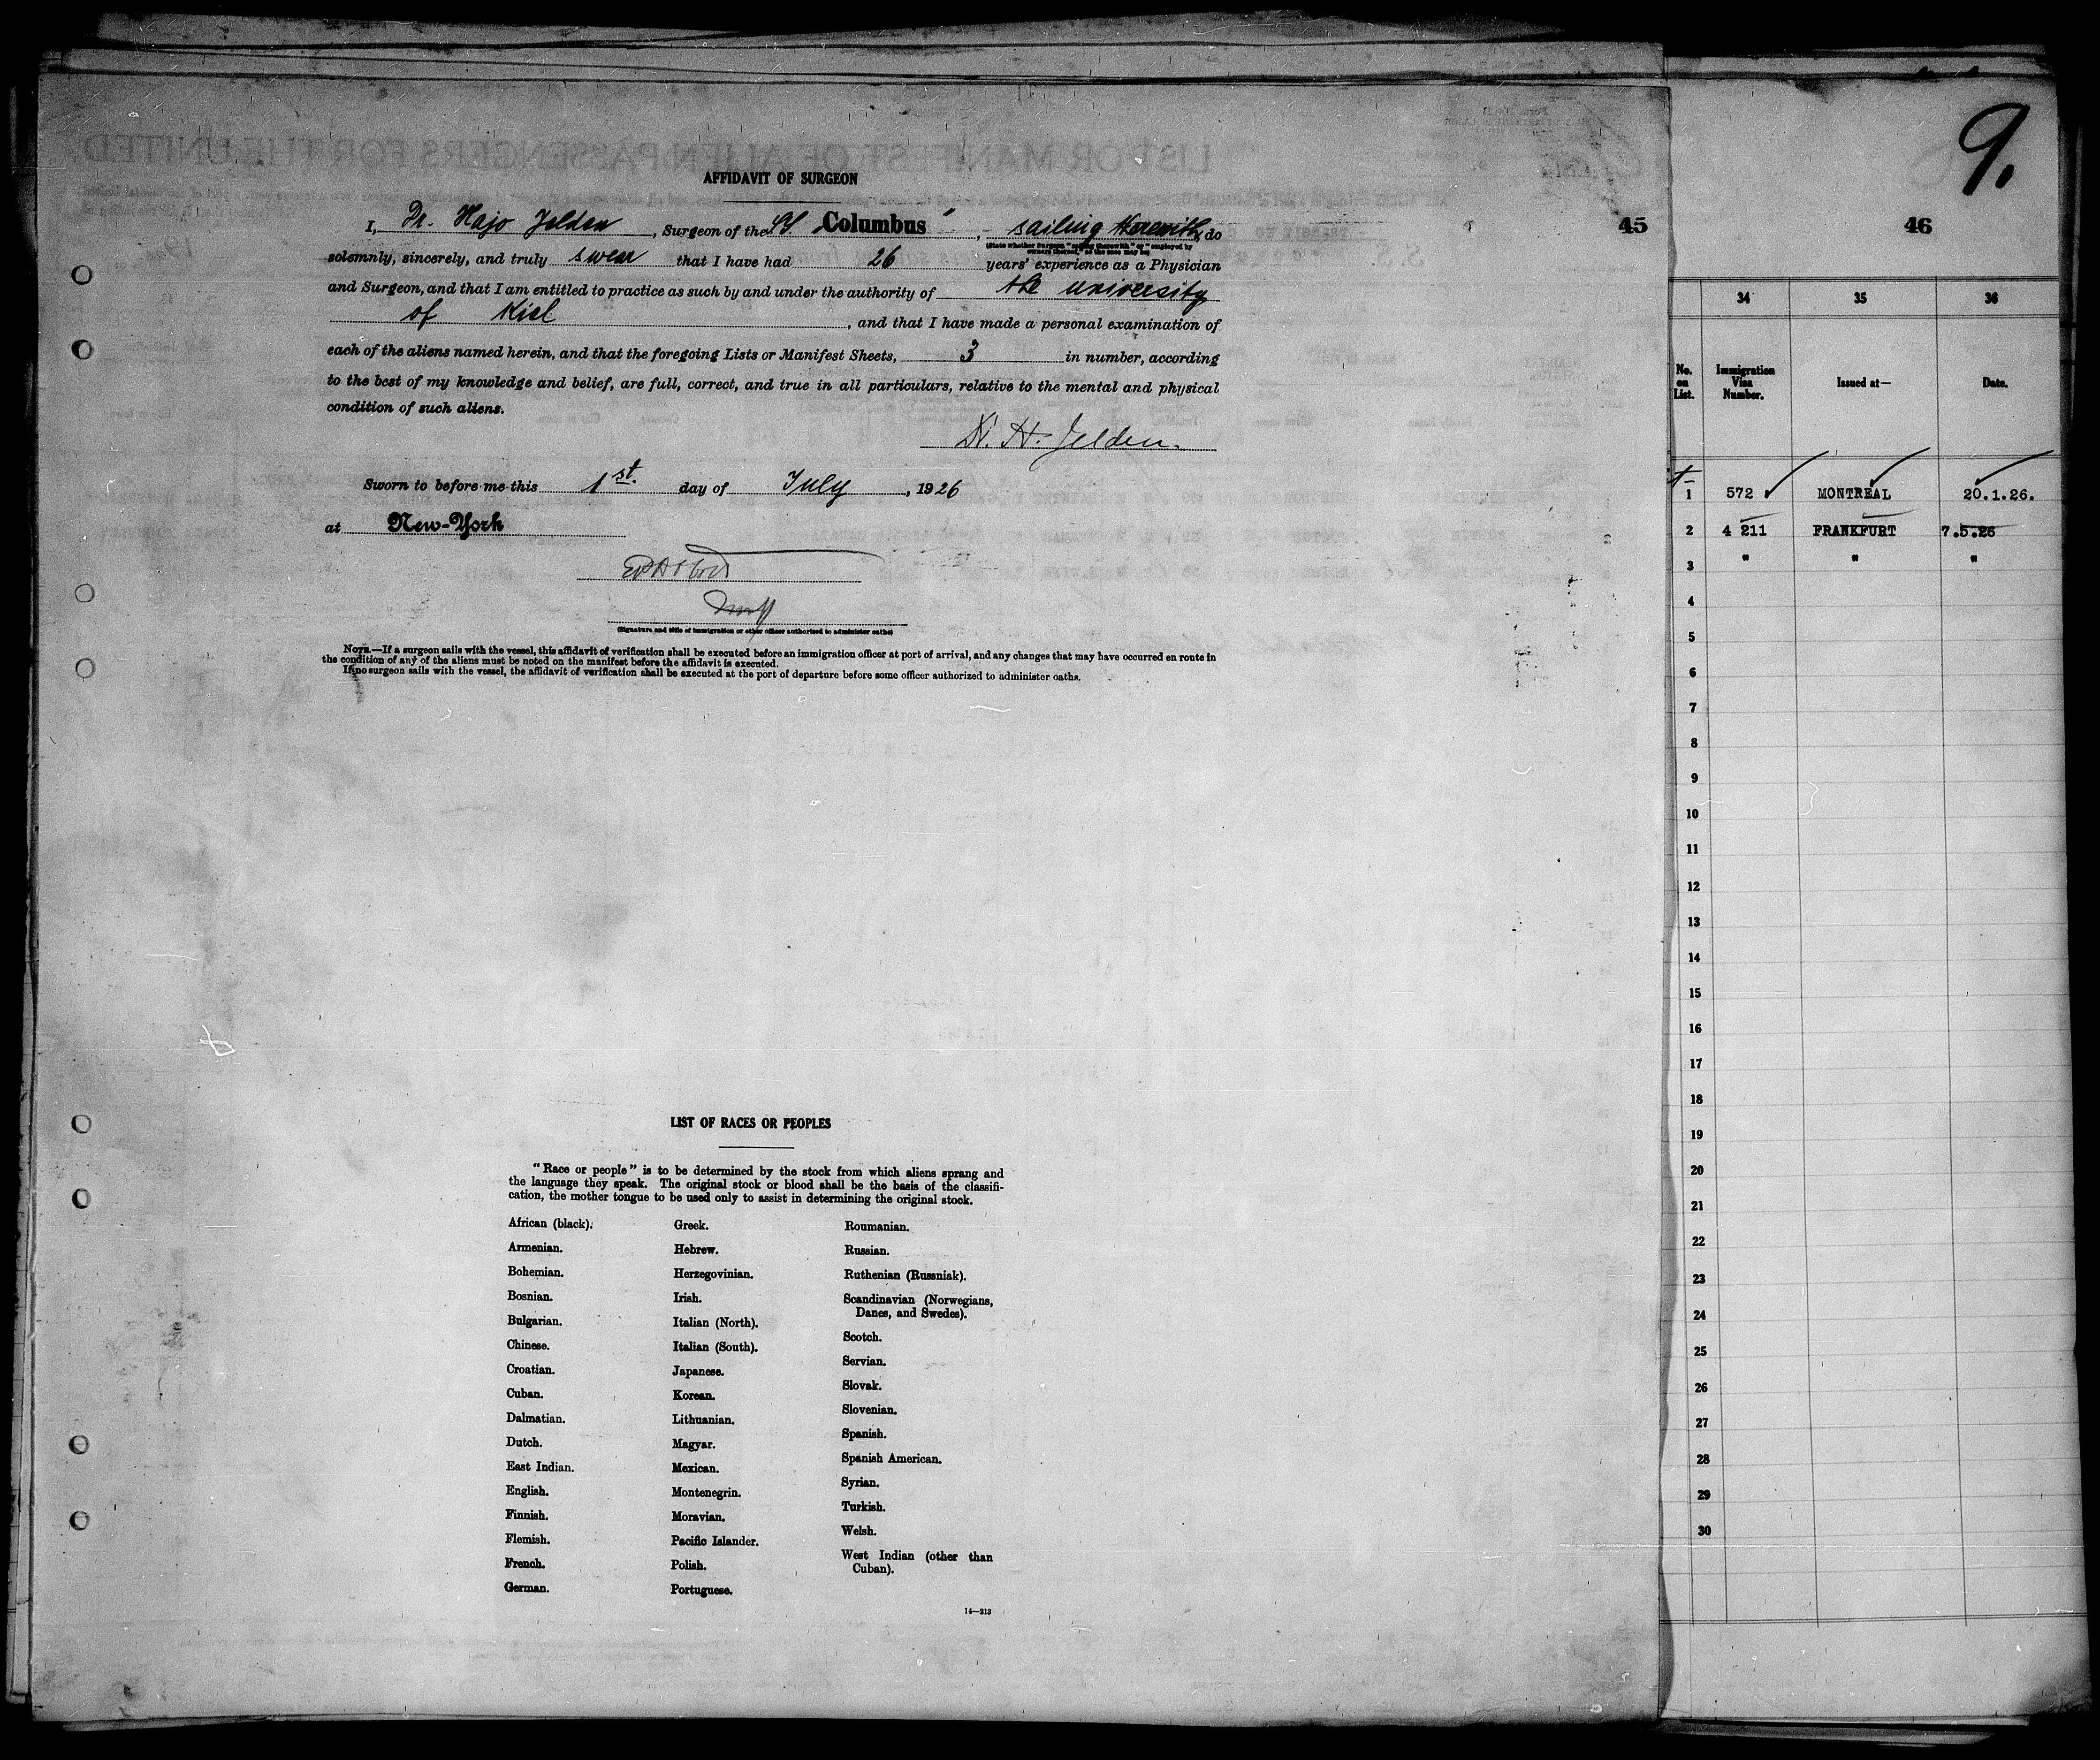 AFFIDAVIT OF SURGEON
I, Dr. Hajo Jelden, Surgeon of the SS „Columbus", sailing therewith, do
(State whether Surgeon "sailing therewith" or "employed by
owners thereof," as the case may be)
solemnly, sincerely, and truly swear that I have had 26 years' experience as a Physician
and Surgeon, and that I am entitled to practice as such by and under the authority of the university
of Kiel, and that I have made a personal examination of
each of the aliens named herein, and that the foregoing Lists or Manifest Sheets, 3 in number, according
to the best of my knowledge and belief, are full, correct, and true in all particulars, relative to the mental and physical
condition of such aliens.
H. Jelden.
Sworn to before me this 1st. day of July, 1926
at New-York
(Signature and title of immigration or other officer authorized to administer oaths)
NOTE.—If a surgeon sails with the vessel, this affidavit of verification shall be executed before an immigration officer at port of arrival, and any changes that may have occurred en route in
the condition of any of the aliens must be noted on the manifest before the affidavit is executed.
If no surgeon sails with the vessel, the affidavit of verification shall be executed at the port of departure before some officer authorized to administer oaths.
LIST OF RACES OR PEOPLES
"Race or people" is to be determined by the stock from which aliens sprang and
the language they speak. The original stock or blood shall be the basis of the classifi-
cation, the mother tongue to be used only to assist in determining the original stock.
African (black).
Armenian.
Bohemian.
Bosnian.
Bulgarian.
Chinese.
Croatian.
Cuban.
Dalmatian.
Dutch.
East Indian.
English.
Finnish.
Flemish.
French.
German.
Greek.
Hebrew.
Herzegovinian.
Irish.
Italian (North).
Italian (South).
Japanese.
Korean.
Lithuanian.
Magyar.
Mexican.
Montenegrin.
Moravian.
Pacific Islander.
Polish.
Portuguese.
Roumanian.
Russian.
Ruthenian (Russniak).
Scandinavian (Norwegians,
Danes, and Swedes).
Scotch.
Servian.
Slovak.
Slovenian.
Spanish.
Spanish American.
Syrian.
Turkish.
Welsh.
West Indian (other than
Cuban).
14—213
45
9.
46
34 35 36
No. on List. Immigration Visa Number. Issued at— Date.
1 572 MONTREAL 20.1.26.
2 4 211 FRANKFURT 7.5.26
3 " " "
4
5
6
7
8
9
10
11
12
13
14
15
16
17
18
19
20
21
22
23
24
25
26
27
28
29
30